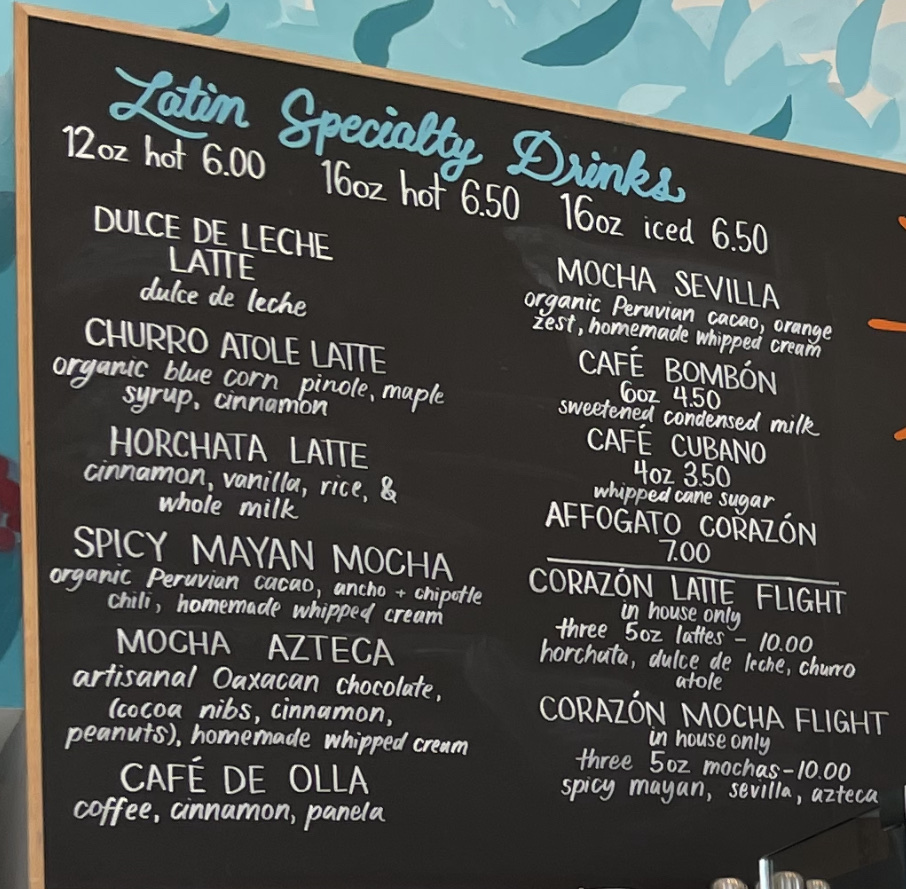 Latin Specialty Drinks
12oz hot 6.00 16oz hot 6.50 16oz iced 6.50
DULCE DE LECHE
LATTE
dulce de leche
CHURRO ATOLE LATTE
organic blue corn pinole, maple
syrup, cinnamon
HORCHATA LATTE
cinnamon, vanilla, rice, &
whole milk
SPICY MAYAN MOCHA
organic Peruvian cacao, ancho + chipotle
chili, homemade whipped cream
MOCHA AZTECA
artisanal Oaxacan chocolate,
(cocoa nibs, cinnamon,
peanuts), homemade whipped cream
CAFÉ DE OLLA
coffee, cinnamon, panela
MOCHA SEVILLA
organic Peruvian cacao, orange
zest, homemade whipped cream
CAFÉ BOMBÓN
6oz 4.50
sweetened condensed milk
CAFÉ CUBANO
4oz 3.50
whipped cane sugar
AFFOGATO CORAZÓN
7.00
CORAZÓN LATTE FLIGHT
in house only
three 5oz lattes - 10.00
horchata, dulce de leche, churro
atole
CORAZÓN MOCHA FLIGHT
in house only
three 5oz mochas-10.00
spicy mayan, sevilla, azteca